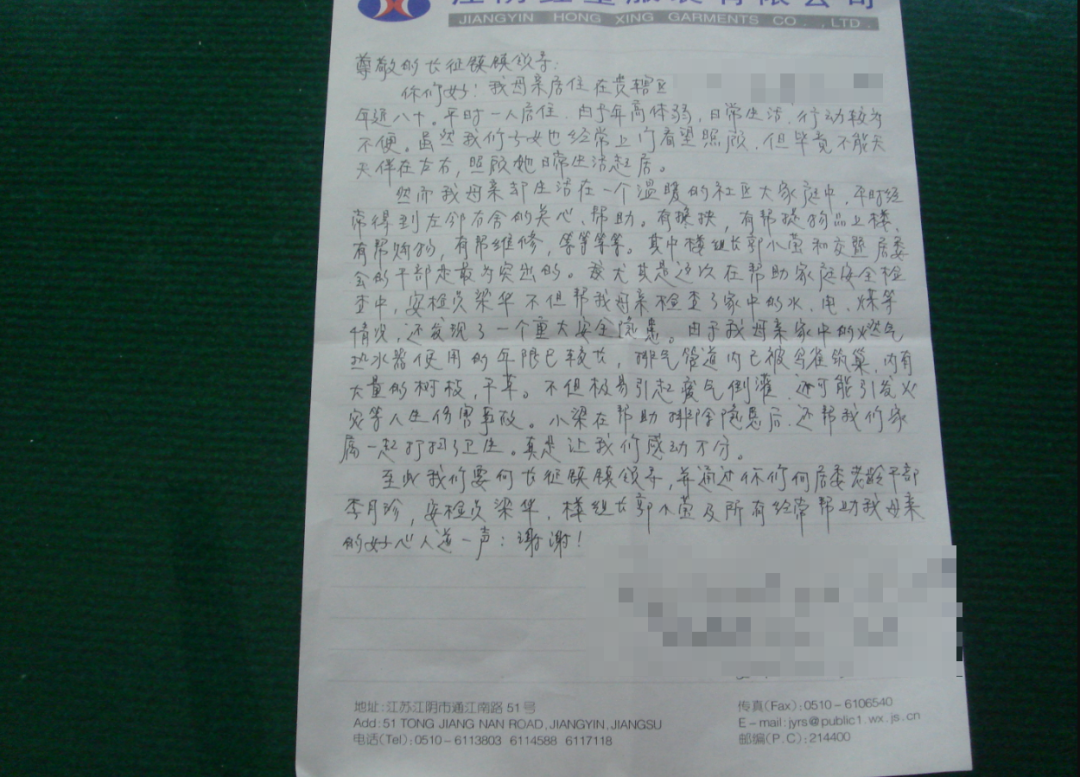 江阴红星服装有限公司
JIANGYIN HONG XING GARMENTS CO.,LTD.
尊敬的长征镇镇领导:
你们好!我母亲居住在贵辖区
年近八十。平时一人居住,由于年高体弱,日常生活、行动较为
不便。虽然我们子女也经常上门看望照顾,但毕竟不能天
天伴在左右,照顾她日常生活起居。
然而我母亲却生活在一个温暖的社区大家庭中,平时经
常得到左邻右舍的关心、帮助。有搀扶,有帮提物品上楼,
有帮购物,有帮维修,等等等等。其中楼组长郭小萤和交暨居委
会的干部是最为突出的。尤其是这次在帮助家庭安全检
查中,安检员梁华不但帮我母亲检查了家中的水、电、煤等
情况,还发现了一个重大安全隐患。由于我母亲家中的燃气
热水器使用的年限已较长,排气管道内已被鸟雀筑巢,内有
大量的树枝,干草。不但极易引起废气倒灌,还可能引发火
灾等人生伤害事故。小梁在帮助排除隐患后,还帮我们家
属一起打扫了卫生。真是让我们感动不分。
至此我们要向长征镇镇领导,并通过你们向居委老龄干部
李月珍,安检员梁华,楼组长郭小萤及所有经常帮助我母亲
的好心人道一声:谢谢!
地址:江苏江阴市通江南路51号
Add:51 TONG JIANG NAN ROAD,JIANGYIN,JIANGSU
电话(Tel):0510-6113803 6114588 6117118
传真(Fax):0510-6106540
E-mail:jyrs@public1.wx.js.cn
邮编(P.C):214400